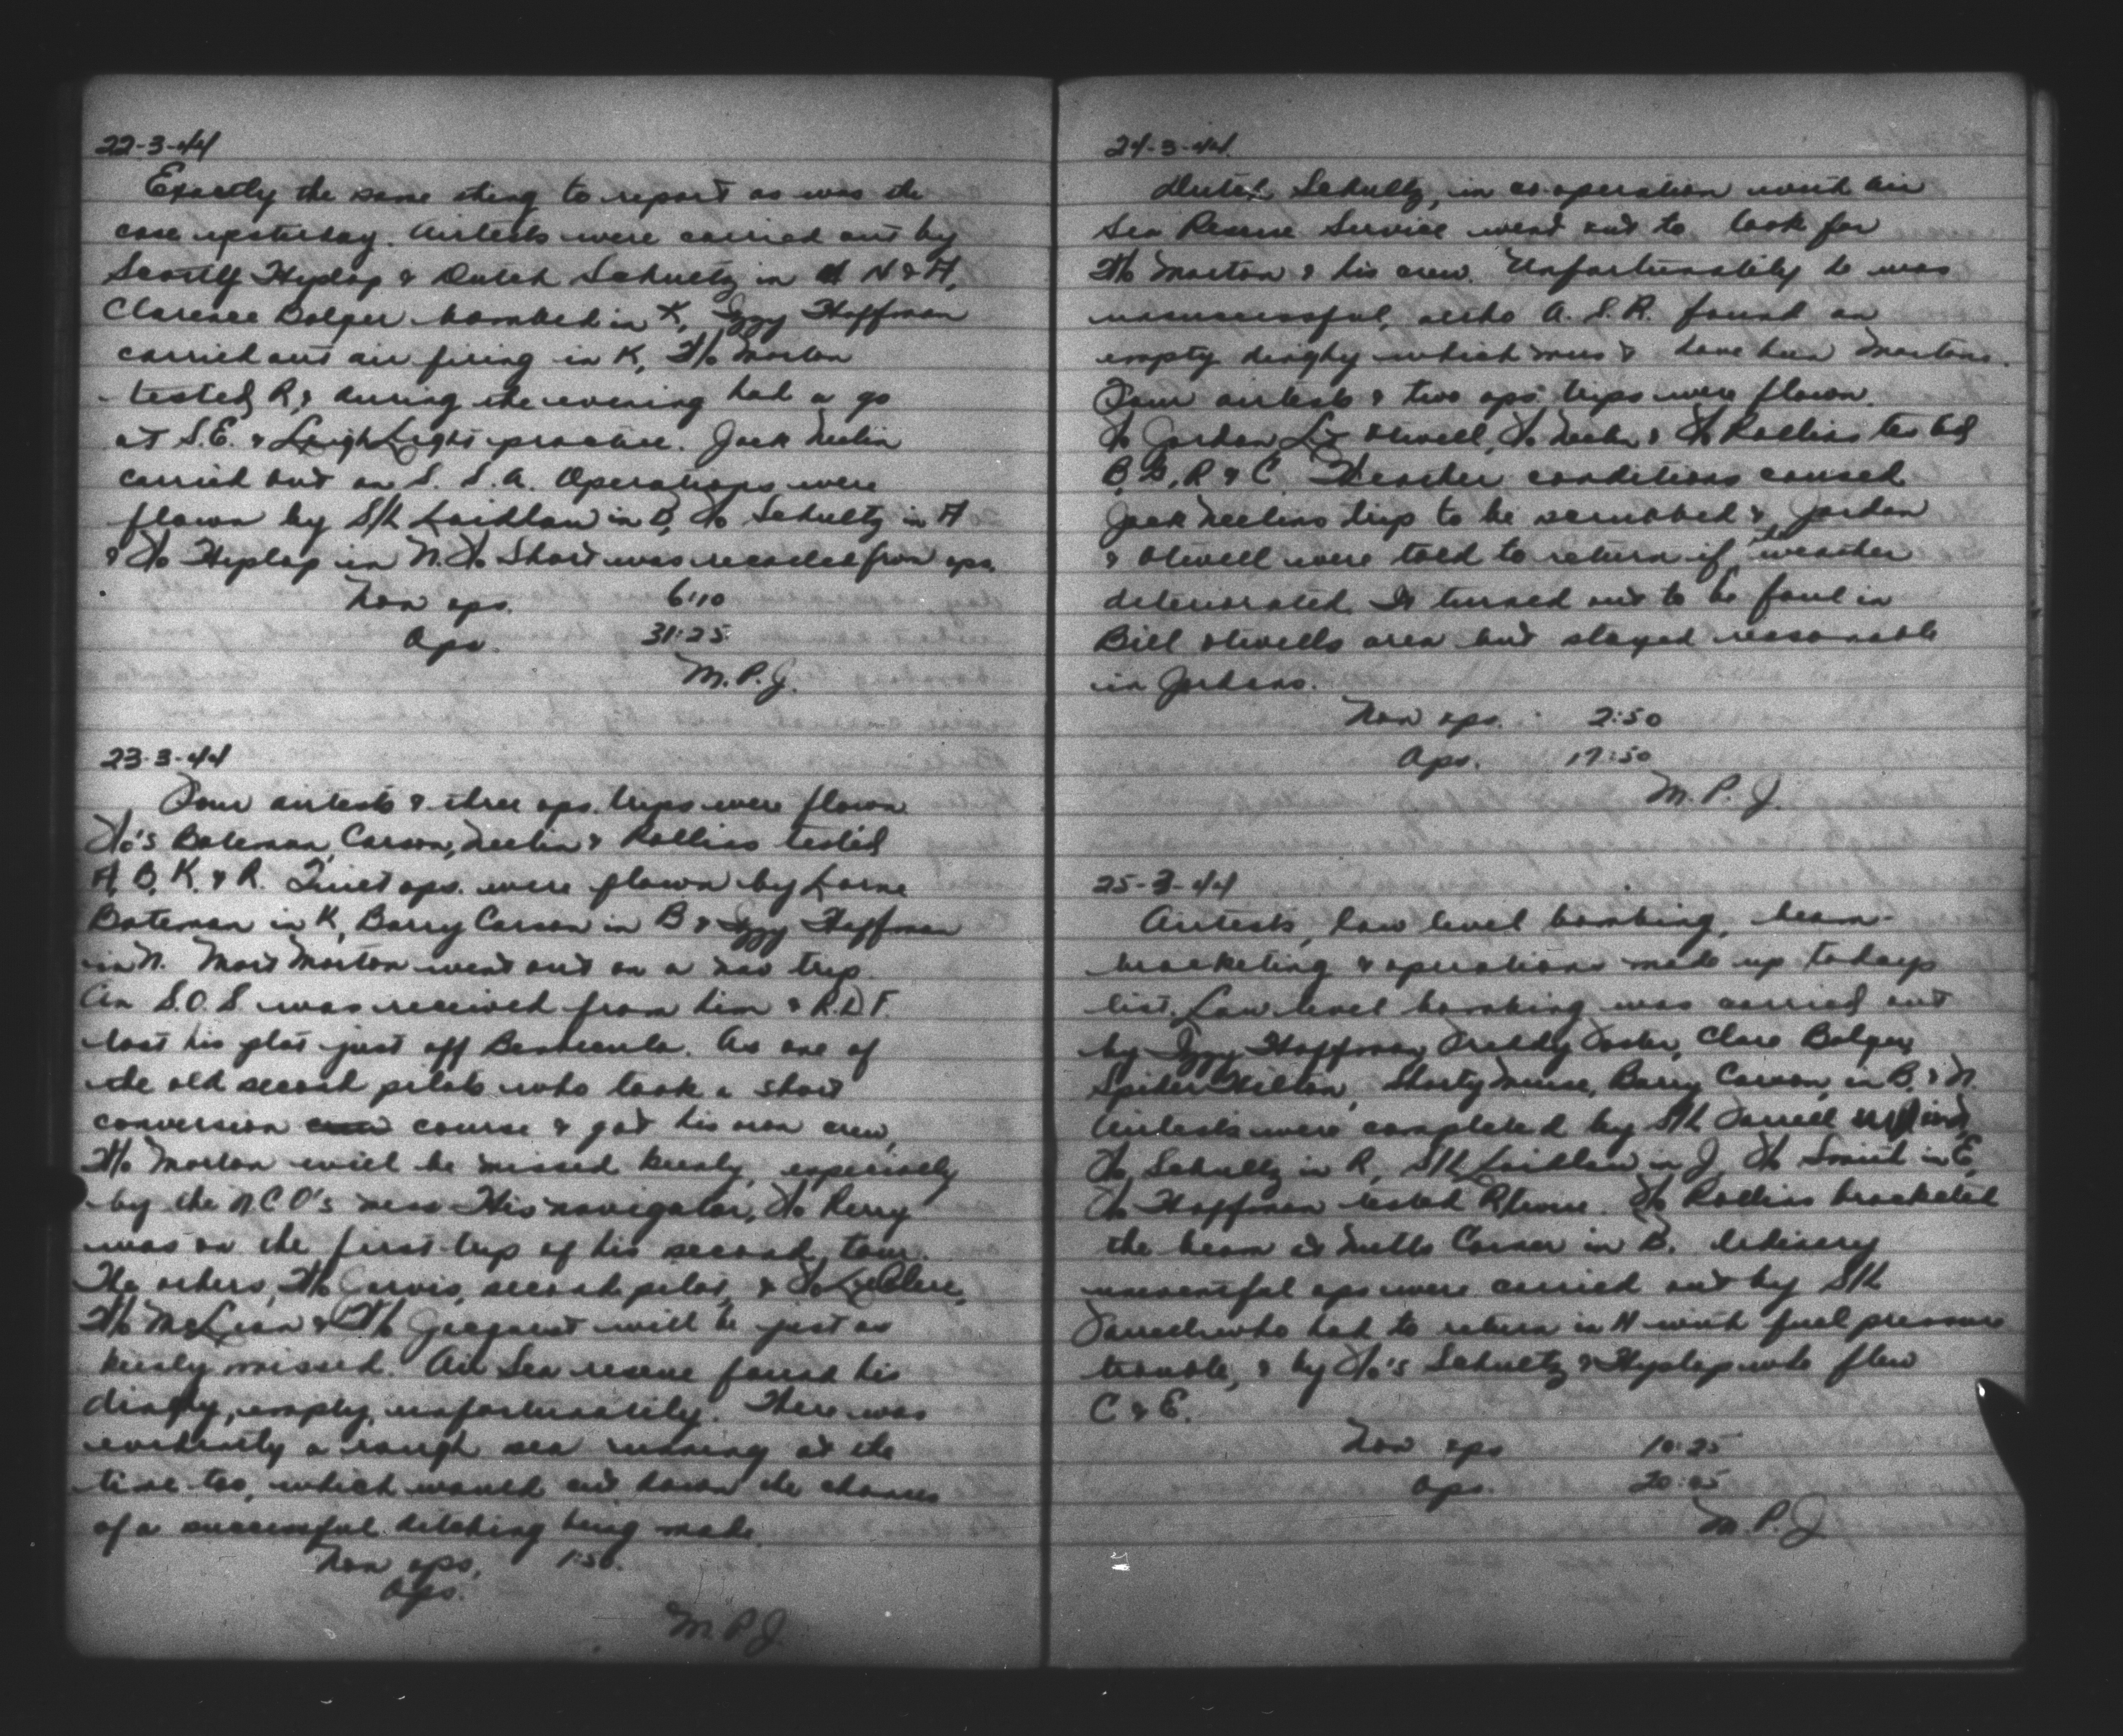 22-3-44
Exactly the same thing to report as was the
case yesterday. Airtests were carried out by
Scotty Hyslop & Dutch Schultz in N & A,
Clarence Bolger bombed in X, Izzy Hoffman
carried out air firing in K, F/O Morton
tested R, & during the evening had a go
at S.E. & Leigh Light practice. Jack Neelin
carried out an S. S. A. Operations were
flown by S/L Laidlaw in D, F/O Schultz in A
& F/O Hyslop in N. F/O Short was recalled from ops.
Non ops. 6:10
Ops. 31:25
M.P.J.
23-3-44
Four airtests & three ops. trips were flown
F/O's Bateman, Carson, Neelin & Rollins tested
A, B, K, & R. Quiet ops. were flown by Lorne
Bateman in K, Barry Carson in B & Izzy Hoffman
in N. Mort Morton went out on a nav trip.
An S.O.S. was received from him & R.D.F.
lost his plot just off Benbecula. As one of
the old second pilots who took a short
conversion course & got his own crew,
F/O Morton will be missed keenly, especially
by the N.C.O's mess. His navigator, F/O Perry
was on the first trip of his second tour.
The others, F/O Jarvis, second pilot, & F/O LeClere,
F/O McLean & F/O will be just as
keenly missed. Air Sea rescue found his
dinghy, empty, unfortunatily. There was
evidently a rough sea running at the
time too, which would cut down the chances
of a successful ditching being made.
Non ops. 1:50.
Ops.
M.P.J.
24-3-44.
Dutch Schultz, in co-operation with Air
Sea Rescue Service went out to look for
F/O Morton & his crew. Unfortunatily he was
unsuccessful, altho A. S. R. found an
empty dinghy which must have been Mortons.
Four airtests & two ops trips were flown.
F/O Jordan, Lt Otwell, F/O Neelin & F/O Rollins tested
B, D, R & C. Weather conditions caused
Jack Neelins trip to be scrubbed & Jordan
& Otwell were told to return if the weather
deteriorated. It turned out to be foul in
Bill Otwells area but stayed reasonable
in Jordans.
Non ops. 2:50
Ops. 17:50
M.P.J.
25-3-44
Airtests, low level bombing, beam
bracketing & operations made up todays
list. Low level bombing was carried out
by Izzy Hoffman, Freddy Foster, Clare Bolger,
Spider Hilton, Shorty Munse, Barry Carson, in B, & N.
Airtests were completed by S/L Farrell
F/O Schultz in R, S/L Laidlaw in J, F/O Smith in E,
F/O Hoffman tested R twice. F/O Rollins bracketed
the beam at Nutts Corner in B. Ordinary
uneventful ops were carried out by S/L
Farrell who had to return in H with fuel pressure
trouble, & by F/O's Schultz & Hyslop who flew
C & E.
Non ops 10:25
Ops.
M.P.J